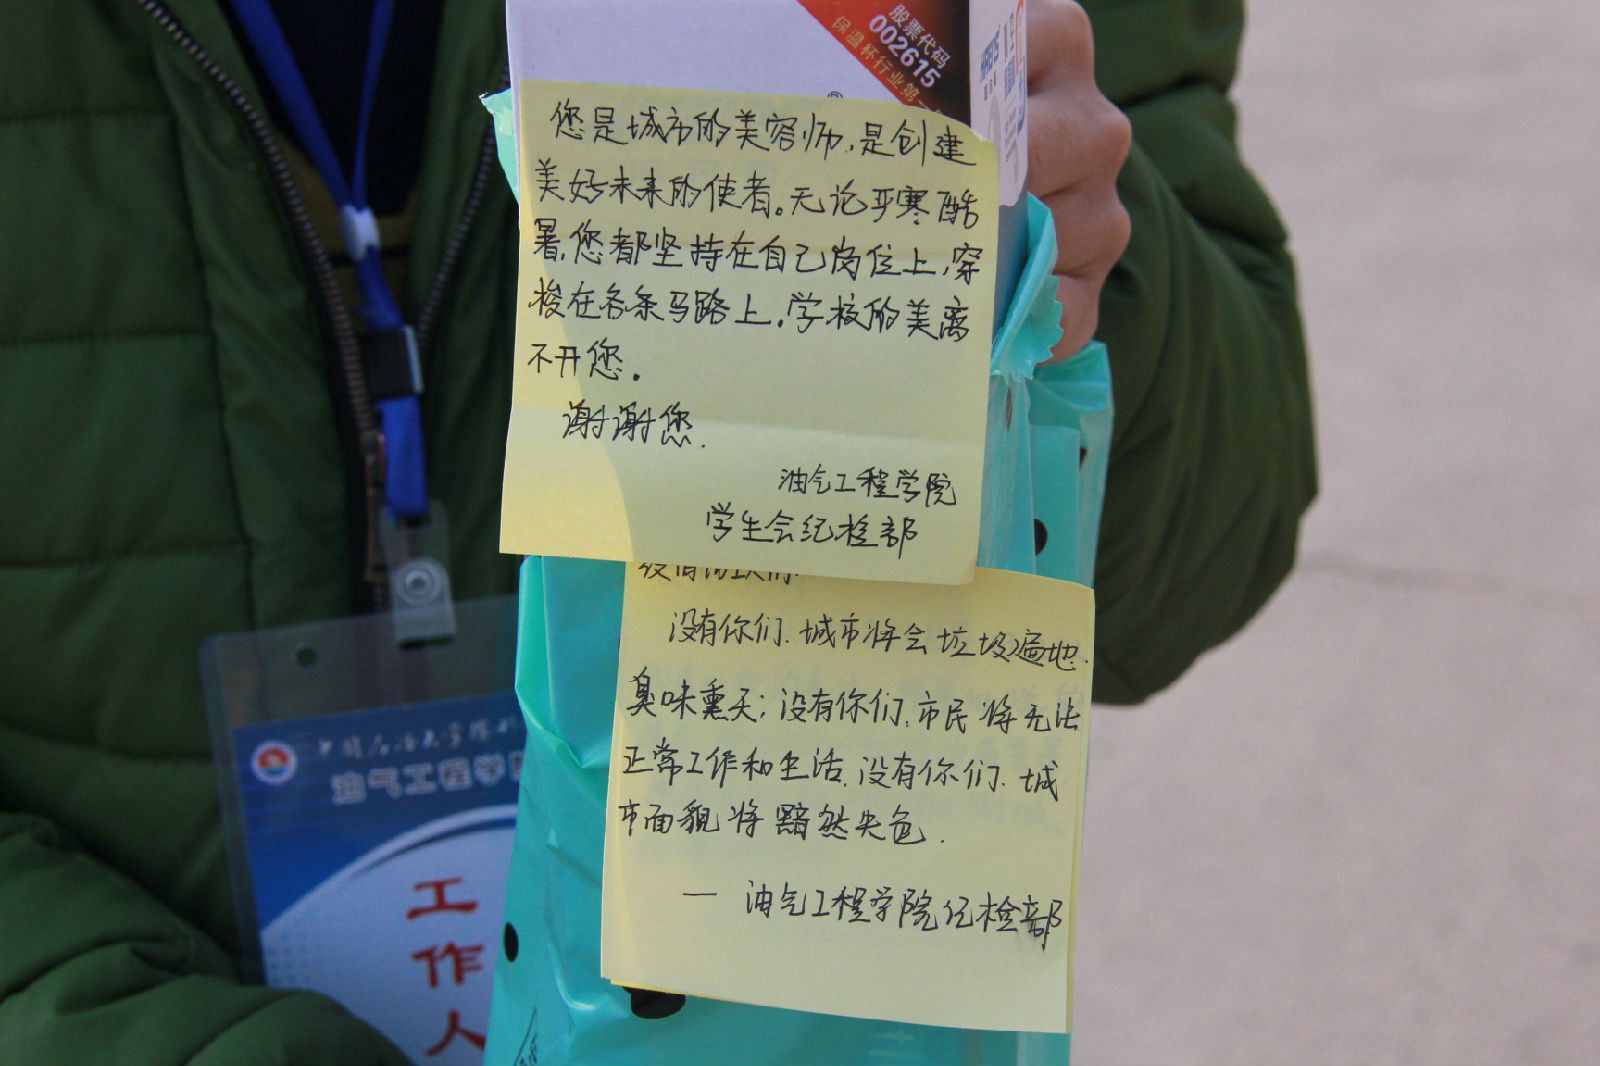 股票代码
002615
保温杯行业第
您是城市的美容师,是创建
美好未来的使者。无论严寒酷
暑,您都坚持在自己岗位上,穿
梭在各条马路上,学校的美离
不开您.
谢谢您.
油气工程学院
学生会纪检部
没有你们.城市将会垃圾遍地.
臭味熏天;没有你们,市民将无法
正常工作和生活,没有你们.城
市面貌将黯然失色.
— 油气工程学院纪检部
中国石油大学胜利
油气工程学院
工
作
人